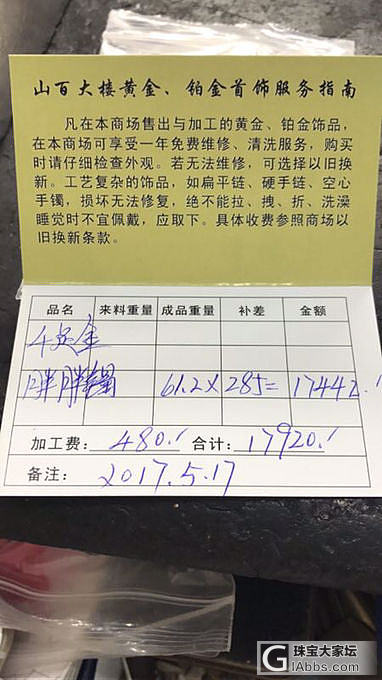 山百大楼黄金、铂金首饰服务指南
凡在本商场售出与加工的黄金、铂金饰品，
在本商场可享受一年免费维修、清洗服务，购买
时请仔细检查外观。若无法维修，可选择以旧换
新。工艺复杂的饰品，如扁平链、硬手链、空心
手镯，损坏无法修复，绝不能拉、拽、折、洗澡
睡觉时不宜佩戴，应取下。具体收费参照商场以
旧换新条款。
品名 来料重量 成品重量 补差 金额
千足金
胖胖 61.2 x 285 = 17442.
加工费： 480. 合计： 17920.
备注： 2017.5.17
珠宝大家坛
GIAbbs.com